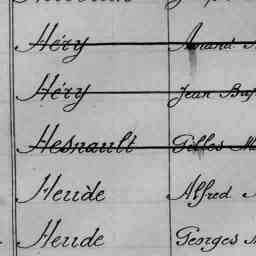 Héry Amand
Héry Jean
Hesnault Gilles M
Heude Alfred
Heude Georges